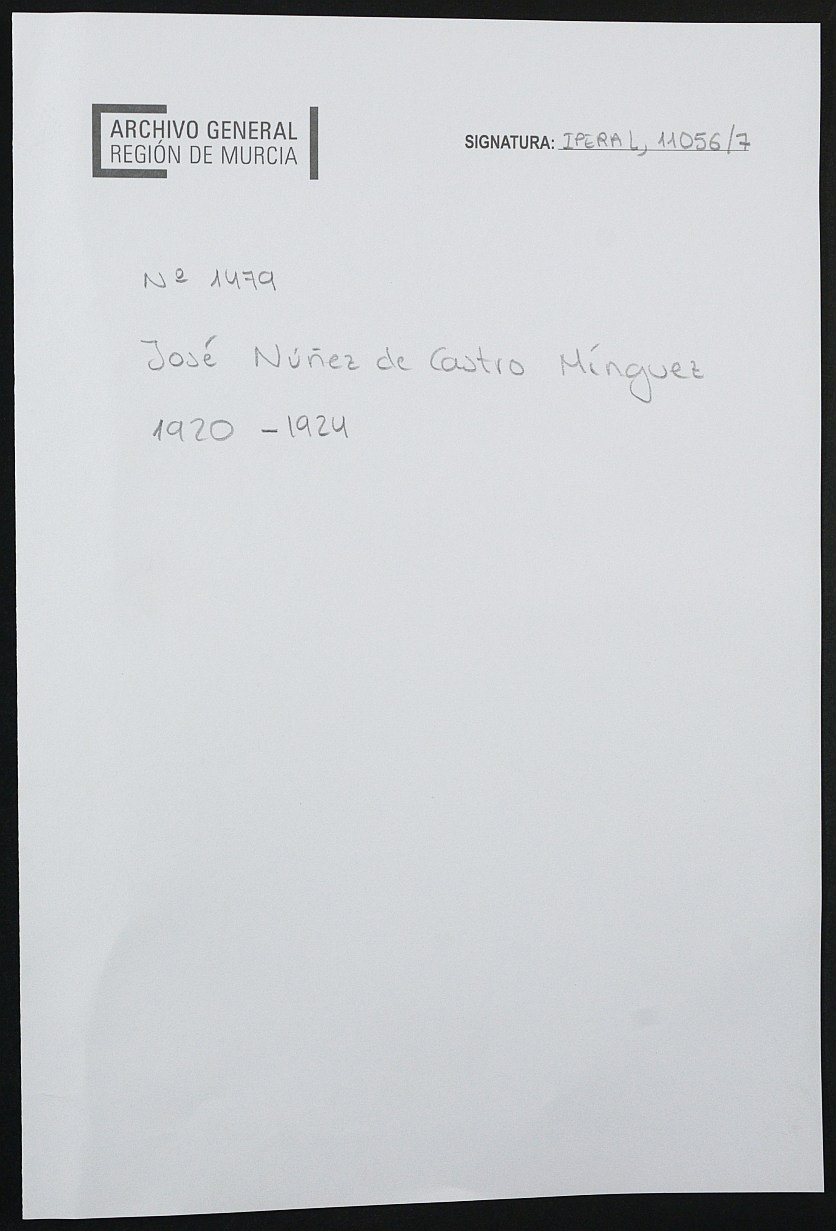 ARCHIVO GENERAL
REGIÓN DE MURCIA
SIGNATURA: IPERAL, 11056/7
Nº 1479
José Núñez de Castro Mínguez
1920 - 1924